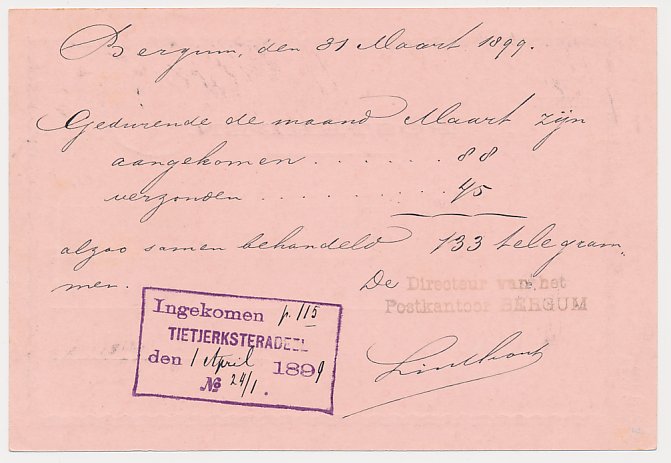 Bergum, den 31 Maart 1899.
Gedurende de maand Maart zijn
aangekomen . . . . . . . 88
verzonden . . . . . . . . . . 45
alzoo samen behandeld 133 telegram-
men. De Directeur van het
Postkantoor BERGUM
Linthout
Ingekomen p. 115
TIETJERKSTERADEEL
den 1 April 1899
No 24/1.